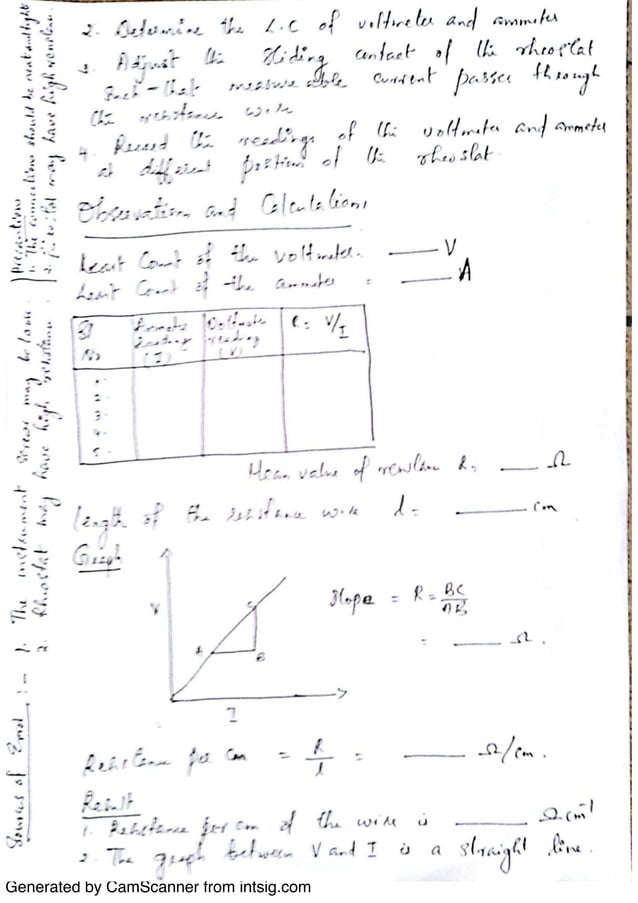 2. Determine the L.C of voltmeter and ammeter
3. Adjust the sliding contact of the rheostat
such-that measureable current passes through
the resistance wire
4. Record the readings of the voltmeter and ammeter
at different position of the rheostat.
Observation and Calculations
Least Count of the voltmeter. ____ V
Least Count of the ammeter = ____ A
Sl No
Ammeter reading (I)
Voltmeter reading (V)
R = V/I
1.
2.
3.
4.
5.
Mean value of R = ____ Ω
length of the resistance wire l = ____ cm
Graph
V
A
B
C
I
Slope = R = BC/AB
= ____ Ω.
Resistance per cm = R/l = ____ Ω/cm.
Result
1. Resistance per cm of the wire is ____ Ωcm⁻¹
2. The graph between V and I is a straight line.
Sources of Error :-
1. The instrument screws may be loose.
2. Rheostat may have high resistance.
Precautions
1. The connections should be neat and tight
2. may have high resistance.
Generated by CamScanner from intsig.com